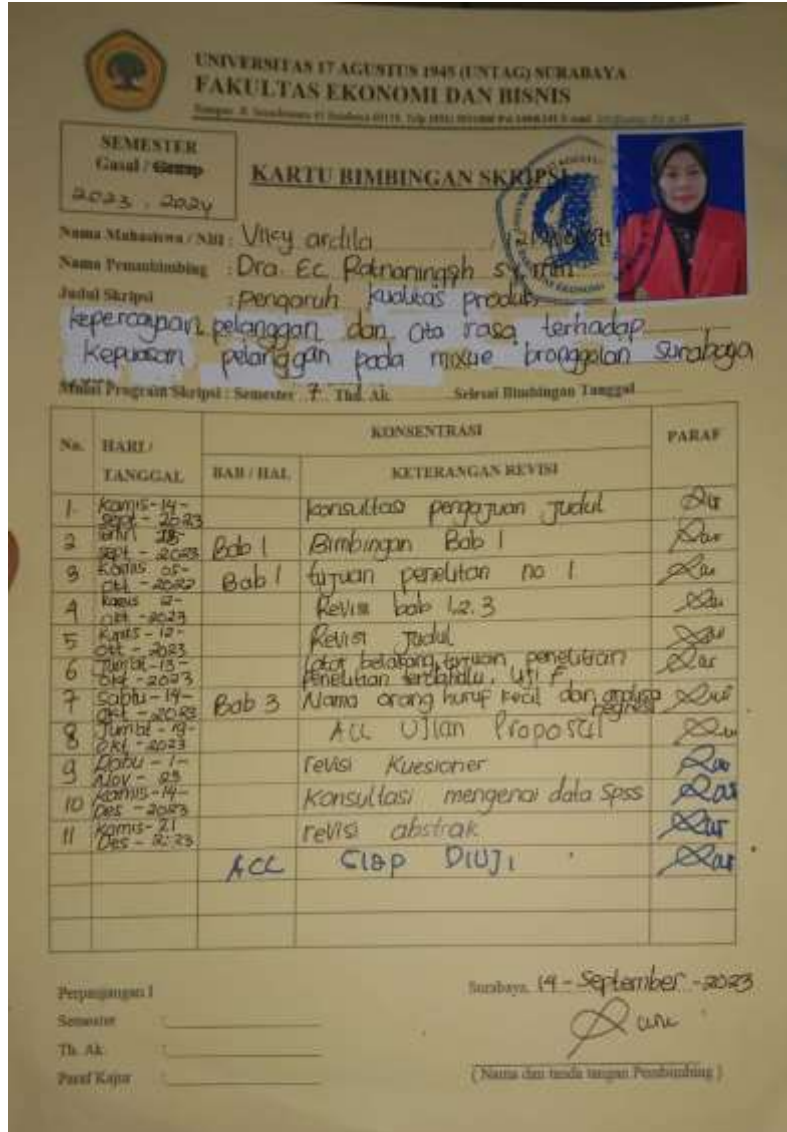 UNIVERSITAS 17 AGUSTUS 1945 (UNTAG) SURABAYA
FAKULTAS EKONOMI DAN BISNIS
SEMESTER
Gasal / Genap
2023 . 2024
KARTU BIMBINGAN SKRIPSI
Nama Mahasiswa / NBI : Vhey ardila /
Nama Pembimbing : Dra. Ec Ratnaningsih
Judul Skripsi : pengaruh kualitas produk,
kepercayaan pelanggan dan cita rasa terhadap
kepuasan pelanggan pada mixue bronggalan surabaya
Mulai Program Skripsi : Semester 7 Thd. Ak. Selesai Bimbingan Tanggal
No. HARI / TANGGAL KONSENTRASI PARAF
BAB / HAL KETERANGAN REVISI
1. Kamis-14-Sept-2023 konsultasi pengajuan judul
2 Sept-2023 Bab 1 Bimbingan Bab 1
3 Kamis 05-Okt-2023 Bab 1 tujuan penelitian no 1
4 Kamis 12-Okt-2023 Revisi bab 1.2.3
5 Kamis-12-Okt-2023 Revisi Judul
6 Jum'at-13-Okt-2023 latar belakang, tujuan penelitian penelitian terdahulu, uji F
7 Sabtu-14-Okt-2023 Bab 3 Nama orang huruf kecil dan analisa regresi
8 Jum'at-19-Okt-2023 ACC Ujian Proposal
9 Rabu-1-Nov-23 revisi Kuesioner
10 Kamis-14-Des-2023 Konsultasi mengenai data Spss
11 Kamis-21 Des-2023 revisi abstrak
ACC SIAP DIUJI
Perpanjangan I
Surabaya, 14-September-2023
Semester :
Th. Ak :
Paraf Kajur :
( Nama dan tanda tangan Pembimbing )